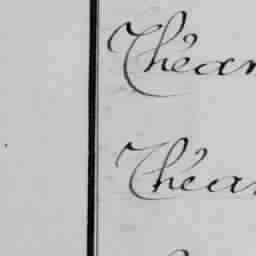 Théar
Théar